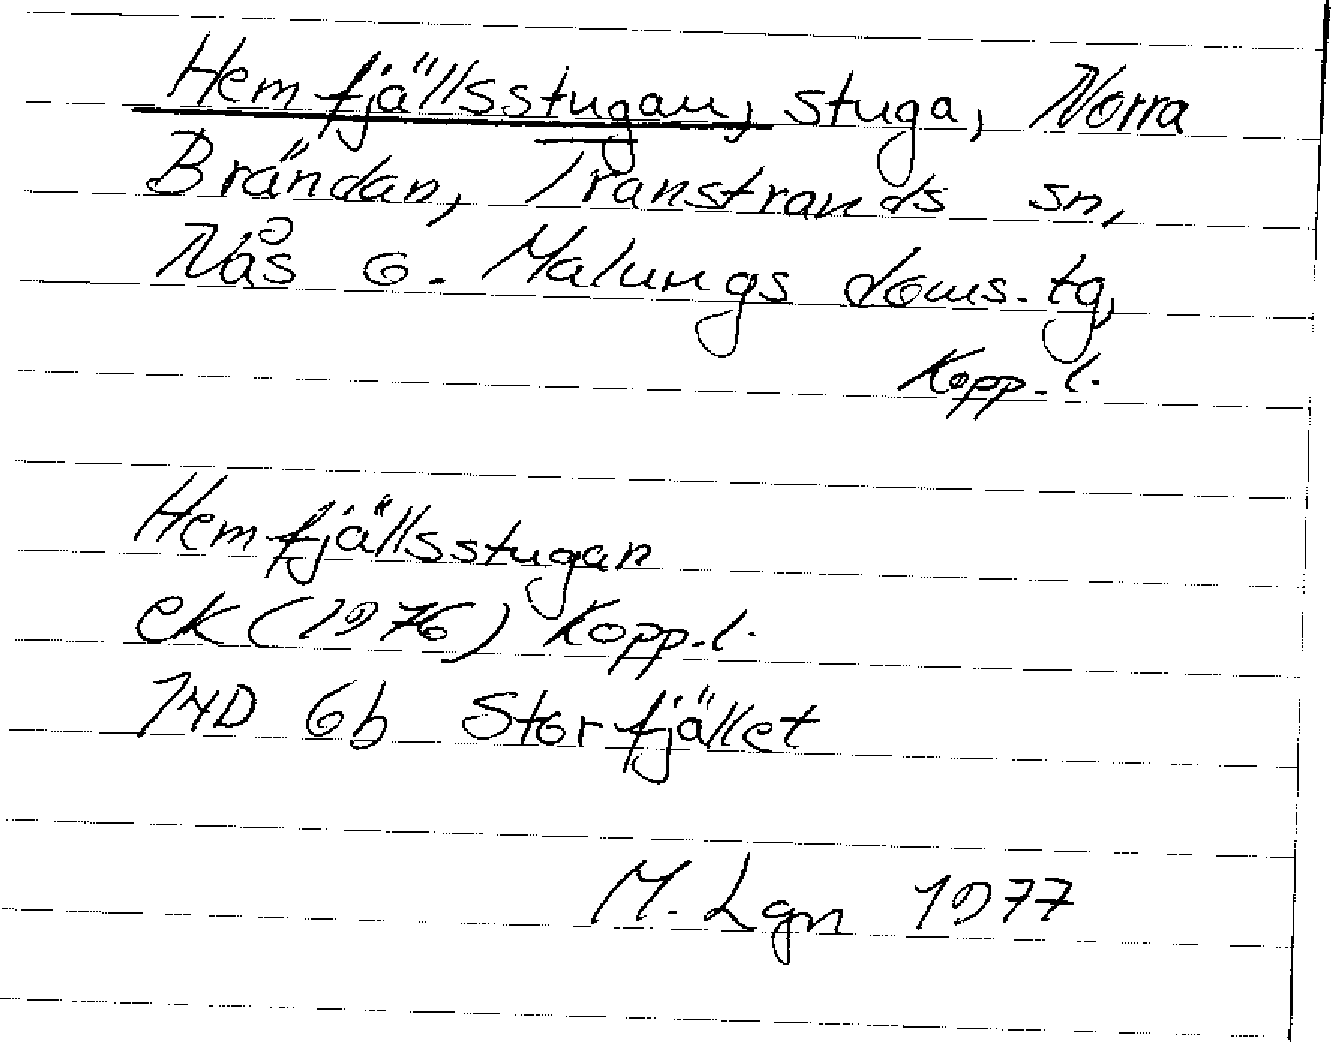 Hemfjällsstugan, stuga, Norra
Brändan, Transtrands sn,
Nås o. Malungs doms.tg,
Kopp.l.
Hemfjällsstugan
ek (1976) Kopp.l.
14D 6b Storfjället
M. Lgn 1977